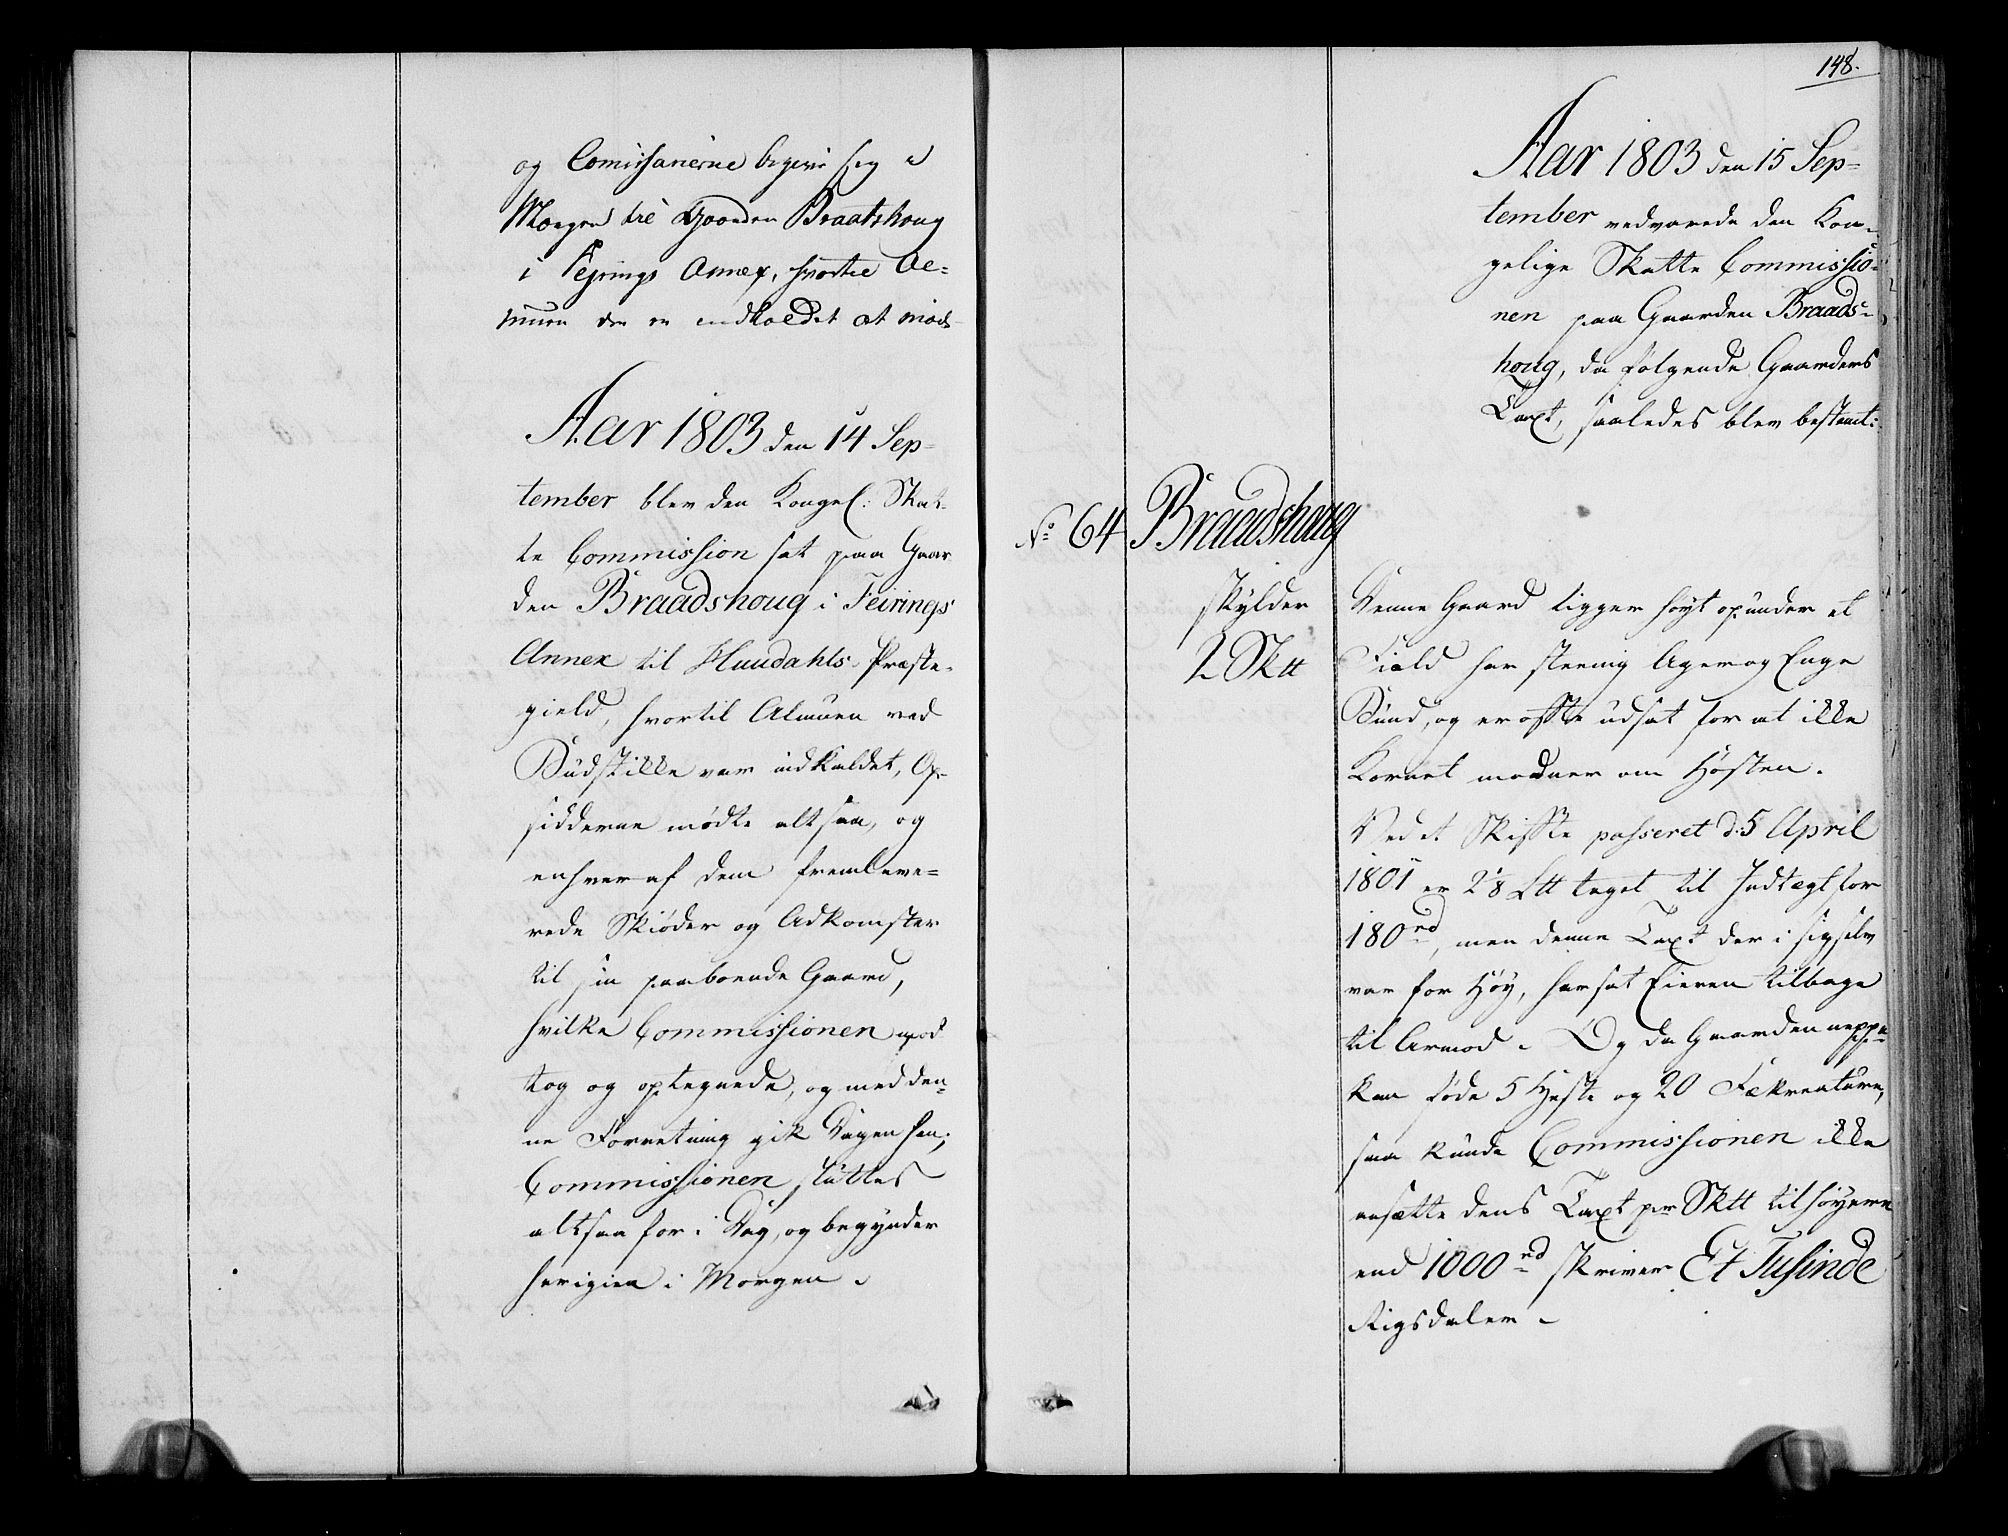 og Comissariérne begive sig
Morgen til Gaarden Braatshoug
i Fejrings Annex, hvortil Al=
muen der er indkaldet at møde
Aar 1803 den 14 Sep-
tember blev den Kongel: Skat-
te Commission sat paa Gaar
den Braadshoug i Feirings
Annex til Hurdahls Præste-
gield, hvortil Almuen ved
Budstikke var indkaldet, Op-
sidderne mødte altsaa, og
enhver af dem fremleve=
rede Skiøder og Adkomster
til sin paaboende Gaard,
hvilke Commissionen mod
tog og optegnede, og med den=
ne Forretning gik Dagen hen;
Commissionen sluttes
altsaa for i Dag, og begynder
herigien i Morgen.
148.
Aar 1803 den 15 Sep=
tember vedvarede den Kon-
gelige Skatte Commissio-
nen paa Gaarden Braads=
houg, da følgende Gaarders
Taxt, saaledes blev bestemt:
No 64 Braadshoug
skylder
2 Sktt
Denne Gaard ligger høyt opunder et
Field har steenig Ager og Enge
Bund, og er ofte udsat for at ikke
Kornet modner om Høsten.
Ved et Skifte passeret d: 5 April
1801 er 2 Sktt taget til Indtægt for
180 rd, men denne Taxt der i sig selv
var for Høy, har sat Eieren tilbage
til Armod. Og da Gaarden neppe
kan føde 5 Heste og 20 Fækreature,
saa kunde Commissionen ikke
ansætte dens Taxt pr Sktt til høyere
end 1000 rd skriver Et Tusinde
Rigsdaler.